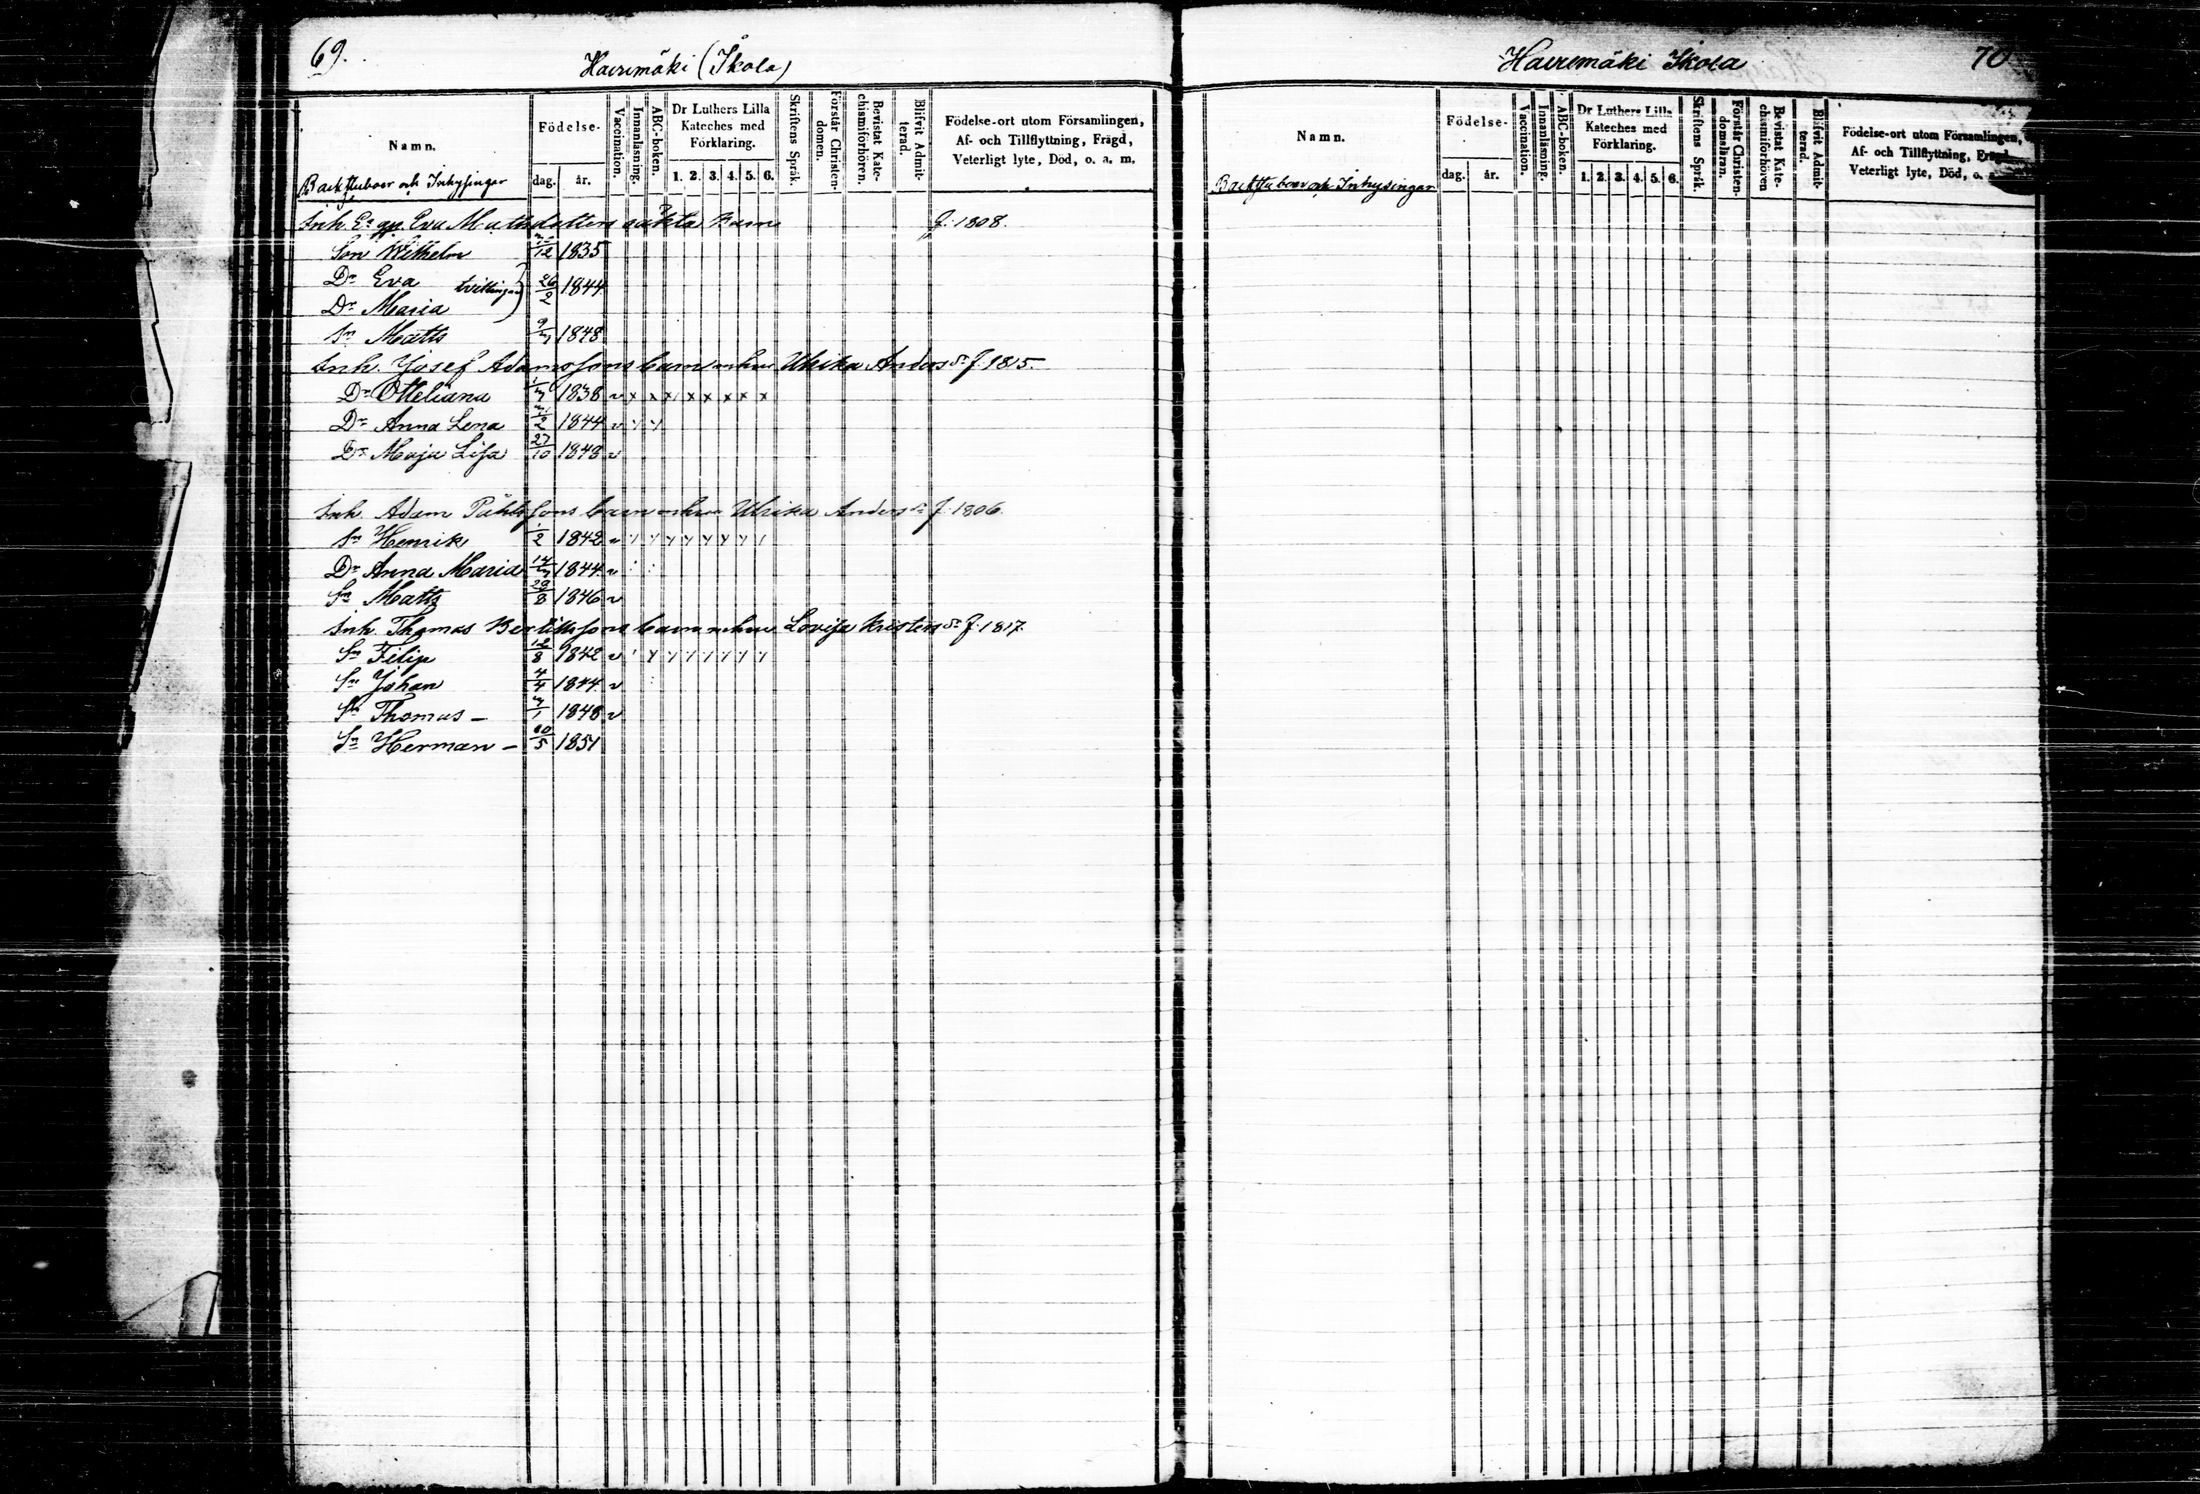 69.
Haeremäki (Skola)
Namn.
Födelse-
dag.
år.
Vaccination.
Innanläsning.
ABC-boken.
Dr Luthers Lilla
Kateches med
Förklaring.
1. 2. 3. 4. 5. 6.
Skriftens Språk.
Förstår Christen-
domen.
Bevistat Kate-
chismiförhören.
Blifvit Admit-
terad.
Födelse-ort utom Församlingen,
Af- och Tillflyttning, Frägd,
Veterligt lyte, Död, o. a. m.
Backstuboer och Inhysingar
Inh. Eva Matsdotters oäkta barn f. 1808.
Son Wilhelm 12 1835
Dr Eva tvillingar 26/2 1844
Dr Maria
Sn Matts 9 1848
Inh. Josef Adamssons barn m hu Ulrika Anders dr f. 1815.
Dr Otteliana 1838 v x x x x x x x x
Dr Anna Lena 2 1844 v
Dr Maja Lisa 27/10 1848 v
Inh. Adam Påhlssons barn m hu Ulrika Anders dr f. 1806.
Sn Henrik 1/2 1842 v
Dr Anna Maria 14 1844 v
Sn Matts 29/8 1846 v
Inh. Thomas Bertilssons barn m hu Lovisa Kristers dr f. 1817.
Sn Filip 12/8 1842 v
Sn Johan 4/4 1844 v
Sn Thomas – 1 1848 v
Sn Herman – 5 1851
Haeremäki Skola
70
Namn.
Födelse-
dag.
år.
Vaccination.
Innanläsning.
ABC-boken.
Dr Luthers Lilla
Kateches med
Förklaring.
1. 2. 3. 4. 5. 6.
Skriftens Språk.
Förstår Christen-
domsläran.
Bevistat Kate-
chismiförhören
Blifvit Admit-
terad.
Födelse-ort utom Församlingen,
Af- och Tillflyttning, Frägd
Veterligt lyte, Död, o. a.
Backstuboer och Inhysingar